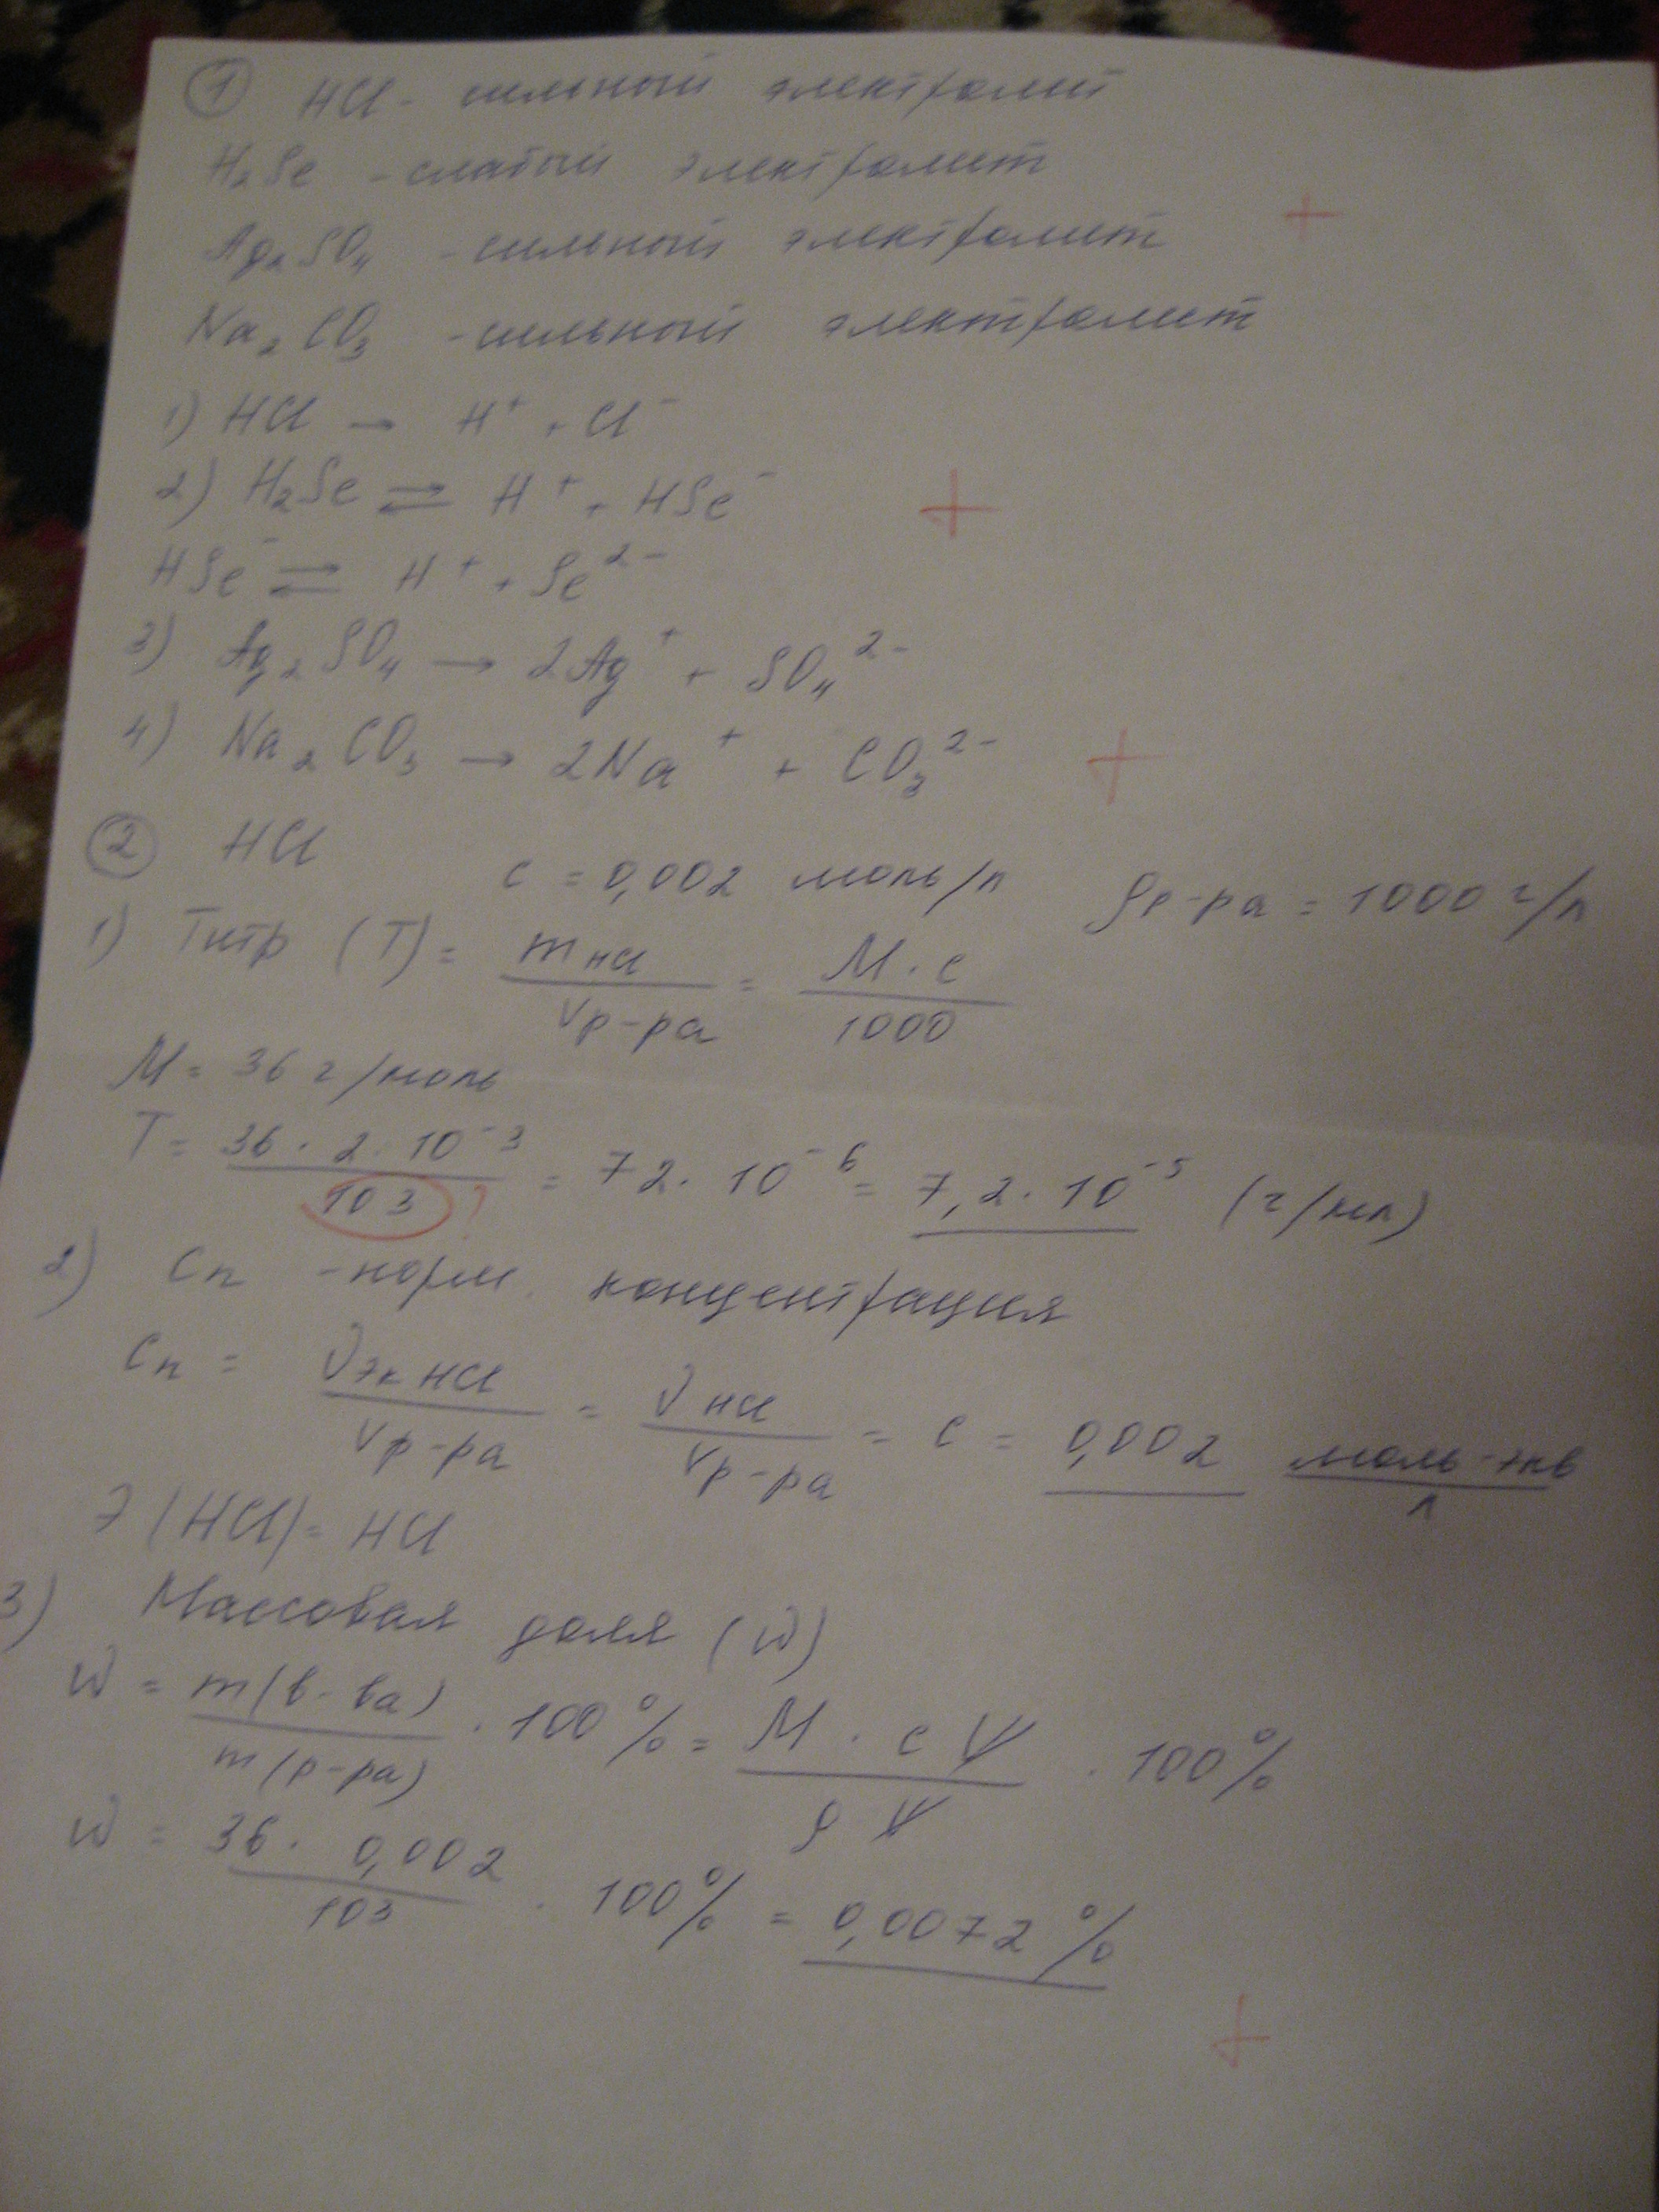 ① HCl - сильный электролит
H₂Se - слабый электролит
Ag₂SO₄ - сильный электролит
+
Na₂CO₃ - сильный электролит
1) HCl → H⁺ + Cl⁻
2) H₂Se ⇌ H⁺ + HSe⁻
+
HSe⁻ ⇌ H⁺ + Se²⁻
3) Ag₂SO₄ → 2Ag⁺ + SO₄²⁻
4) Na₂CO₃ → 2Na⁺ + CO₃²⁻
+
② HCl c = 0,002 моль/л ρр-ра = 1000 г/л
1) Титр (T) = mHCl / Vр-ра = M · c / 1000
M = 36 г/моль
T = 36 · 2 · 10⁻³ / 103 = 72 · 10⁻⁶ = 7,2 · 10⁻⁵ (г/мл)
?
2) Cн - норм. концентрация
Cн = νэк HCl / Vр-ра = ν HCl / Vр-ра = c = 0,002 моль-экв / л
Э (HCl) = HCl
3) Массовая доля (W)
W = m(в-ва) / m(р-ра) · 100% = M · c V / ρ V · 100%
W = 36 · 0,002 / 103 · 100% = 0,0072%
+